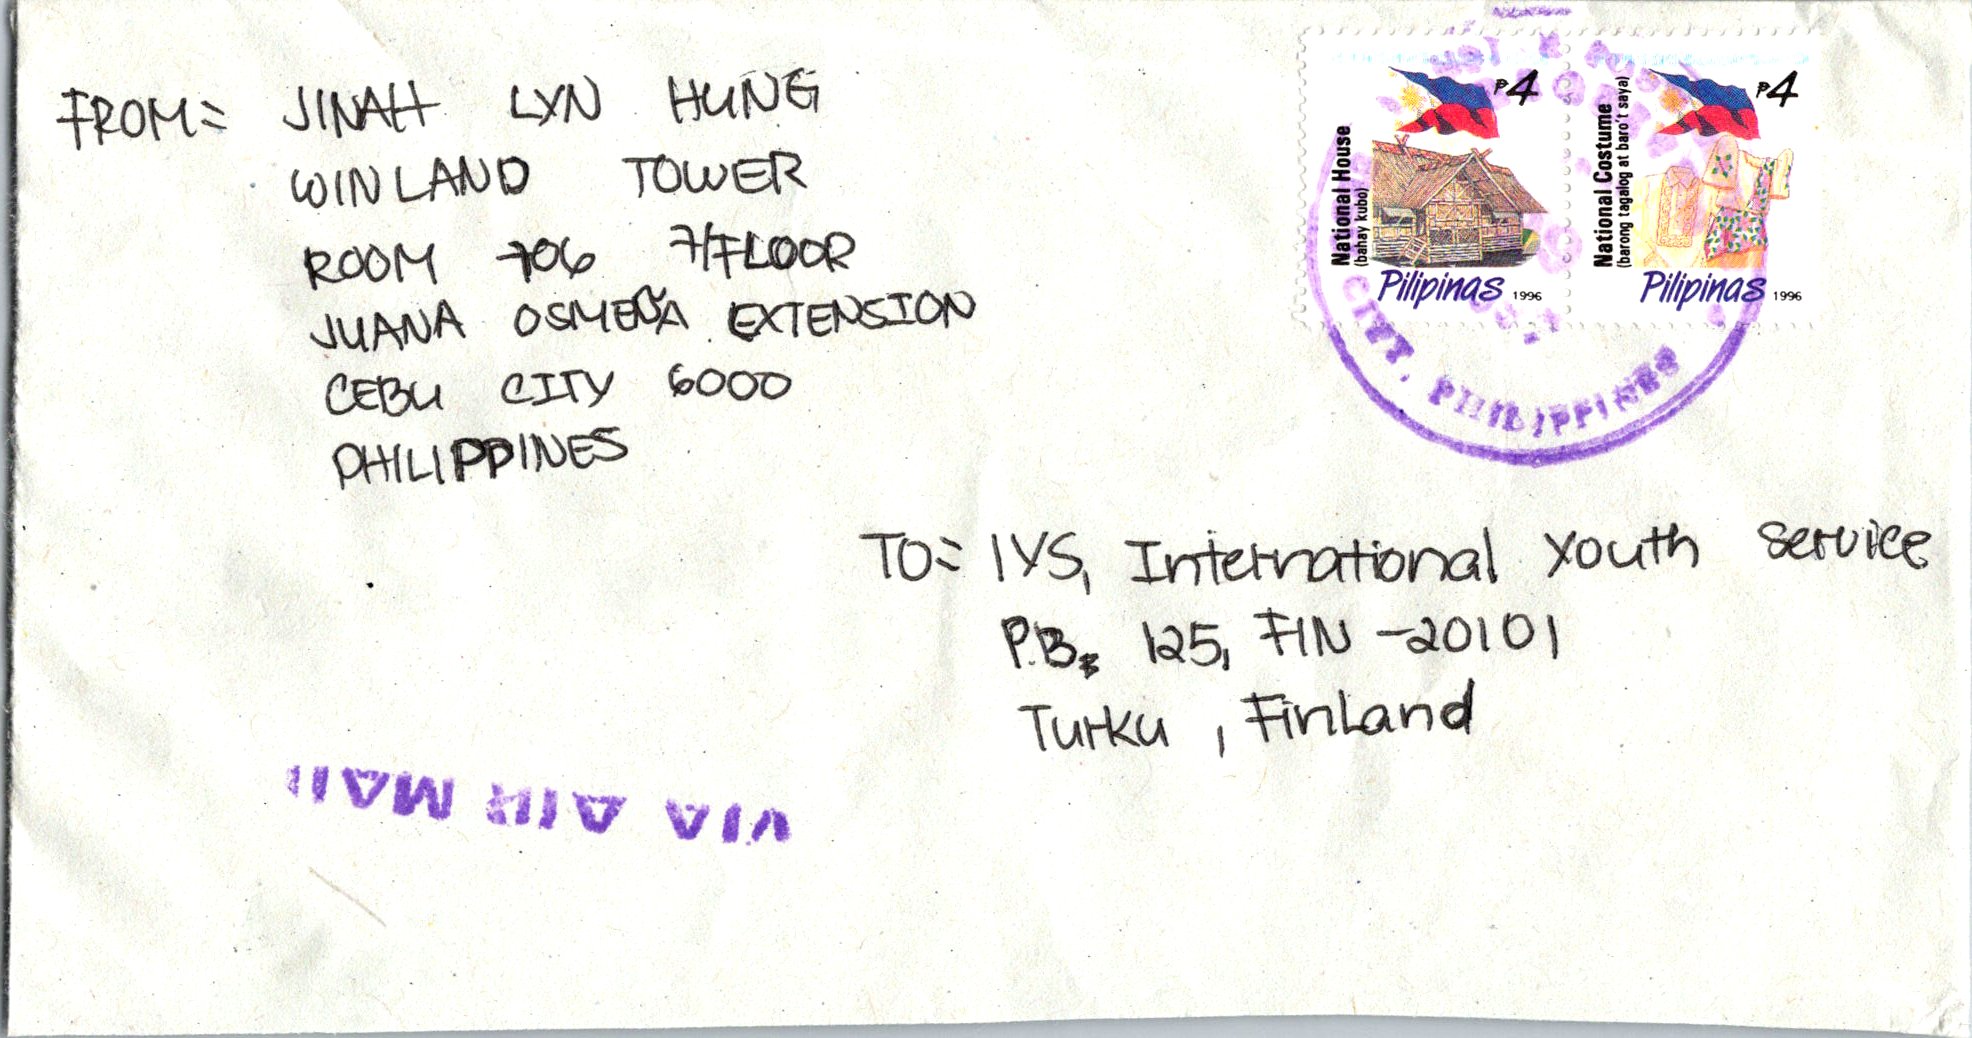 FROM= JINAH LYN HUNG
WINLAND TOWER
ROOM 706 7/FLOOR
JUANA OSMEÑA EXTENSION
CEBU CITY 6000
PHILIPPINES
₱4
National House
(bahay kubo)
Pilipinas 1996
₱4
National Costume
(barong tagalog at baro't saya)
Pilipinas 1996
CITY, PHILIPPINES
TO= IYS, International Youth Service
P.B. 125, FIN -20101
Turku, Finland
VIA AIR MAIL